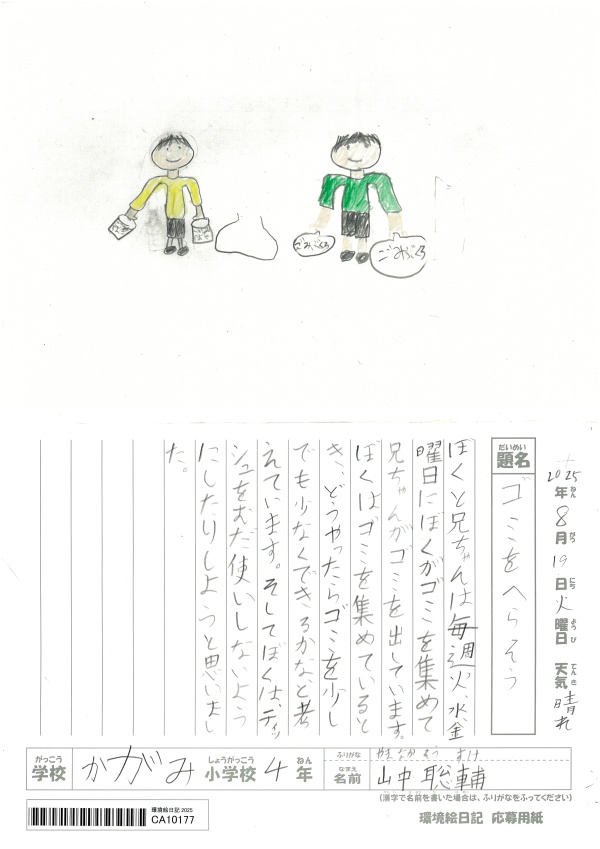 ごみぶくろ
ごみぶくろ
2025年8月19日火曜日 天気晴れ
ねん がつ にち ようび てんき
だいめい
題名
ゴミをへらそう
ぼくと兄ちゃんは毎週火、水、金
曜日にぼくがゴミを集めて
兄ちゃんがゴミを出しています。
ぼくはゴミを集めていると
き、どうやったらゴミを少し
でも少なくできるかなと考
えています。そしてぼくは、ティッ
シュをむだ使いしないよう
にしたりしようと思いまし
た。
がっこう しょうがっこう ねん
学校 かがみ 小学校 4年
ふりがな やまなかそうすけ
なまえ
名前 山中聡輔
(漢字で名前を書いた場合は、ふりがなをふってください)
環境絵日記 2025
CA10177
環境絵日記 応募用紙